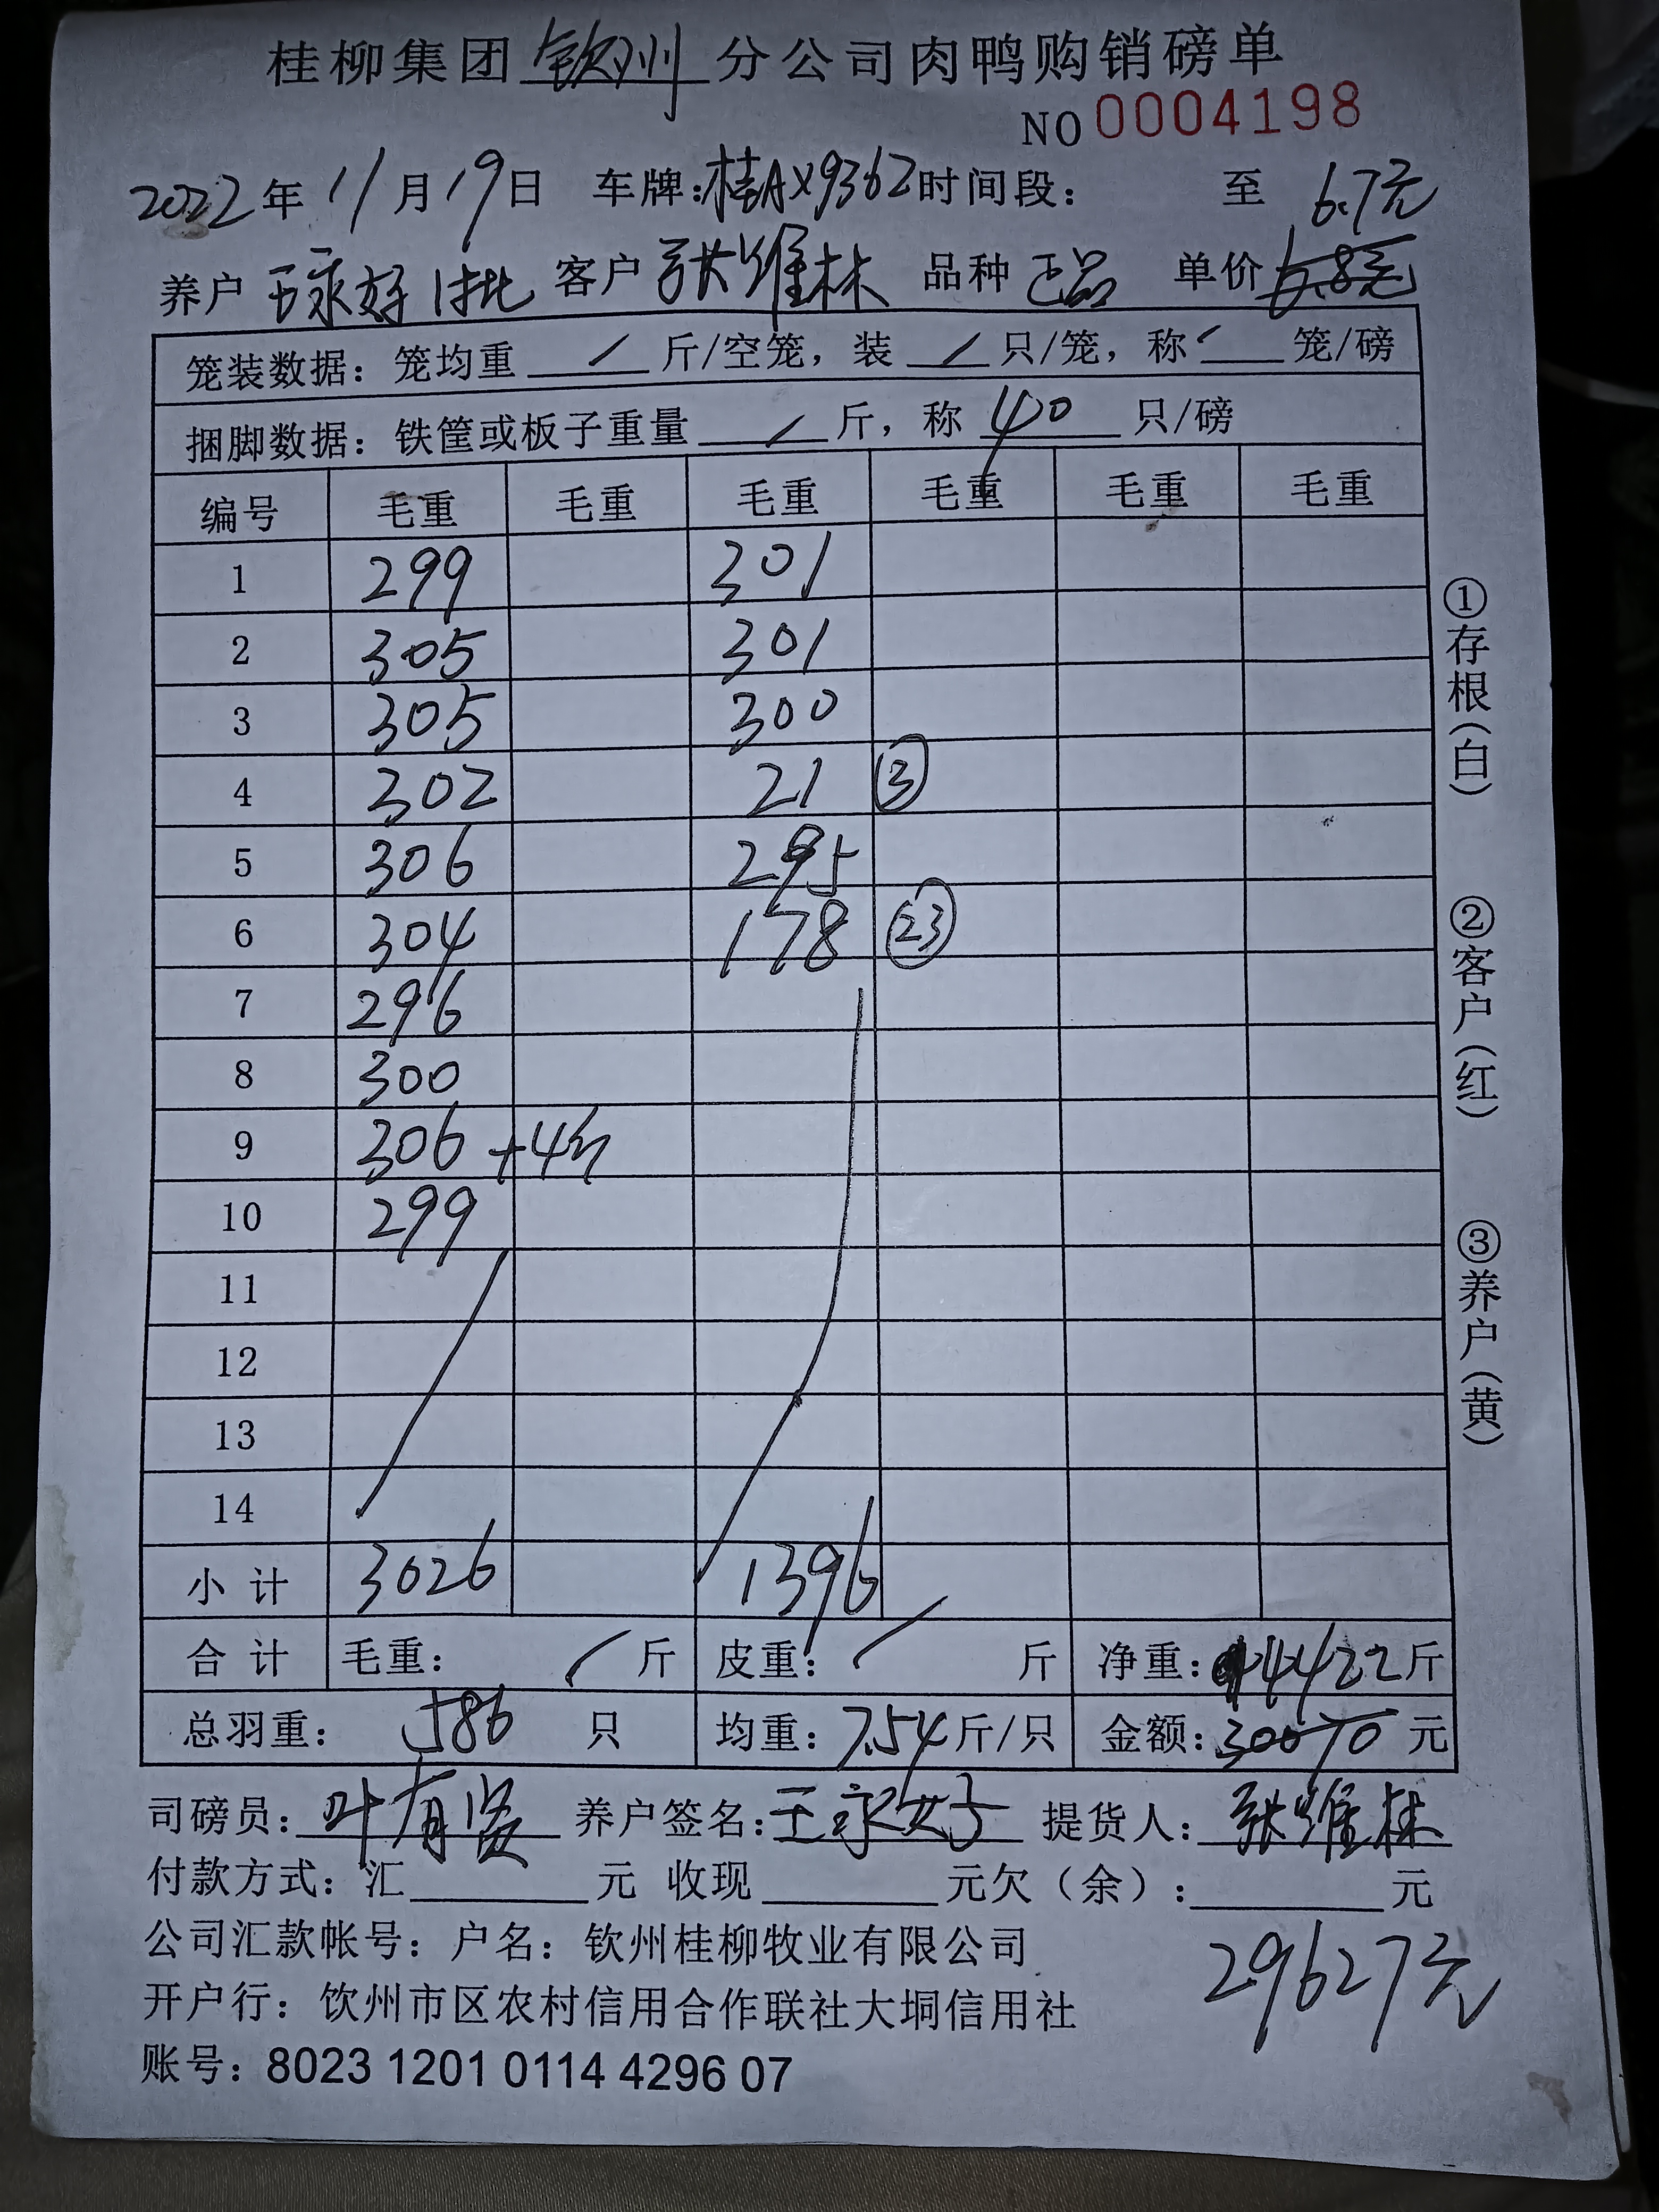 桂柳集团钦州分公司肉鸭购销磅单
NO 0004198
2022年11月19日 车牌:桂AX9362 时间段: 至 6.7元
养户 王永好 1批 客户 张维林 品种 正品 单价 6.8元
笼装数据:笼均重 / 斤/空笼,装 / 只/笼,称 / 笼/磅
捆脚数据:铁筐或板子重量 / 斤,称 40 只/磅
编号 毛重 毛重 毛重 毛重 毛重 毛重
1 299 301
2 305 301
3 305 300
4 302 21 ③
5 306 295
6 304 178 ㉓
7 296
8 300
9 306 +4斤
10 299
11
12
13
14
小计 3026 1396
合计 毛重: / 斤 皮重: / 斤 净重: 4422斤
总羽重: 586 只 均重: 7.54斤/只 金额: 30070 元
司磅员: 叶有贤 养户签名: 王永好 提货人: 张维林
付款方式:汇 元 收现 元欠(余): 元
公司汇款帐号:户名:钦州桂柳牧业有限公司
29627元
开户行:钦州市区农村信用合作联社大垌信用社
账号:8023 1201 0114 4296 07
①存根(白)
②客户(红)
③养户(黄)